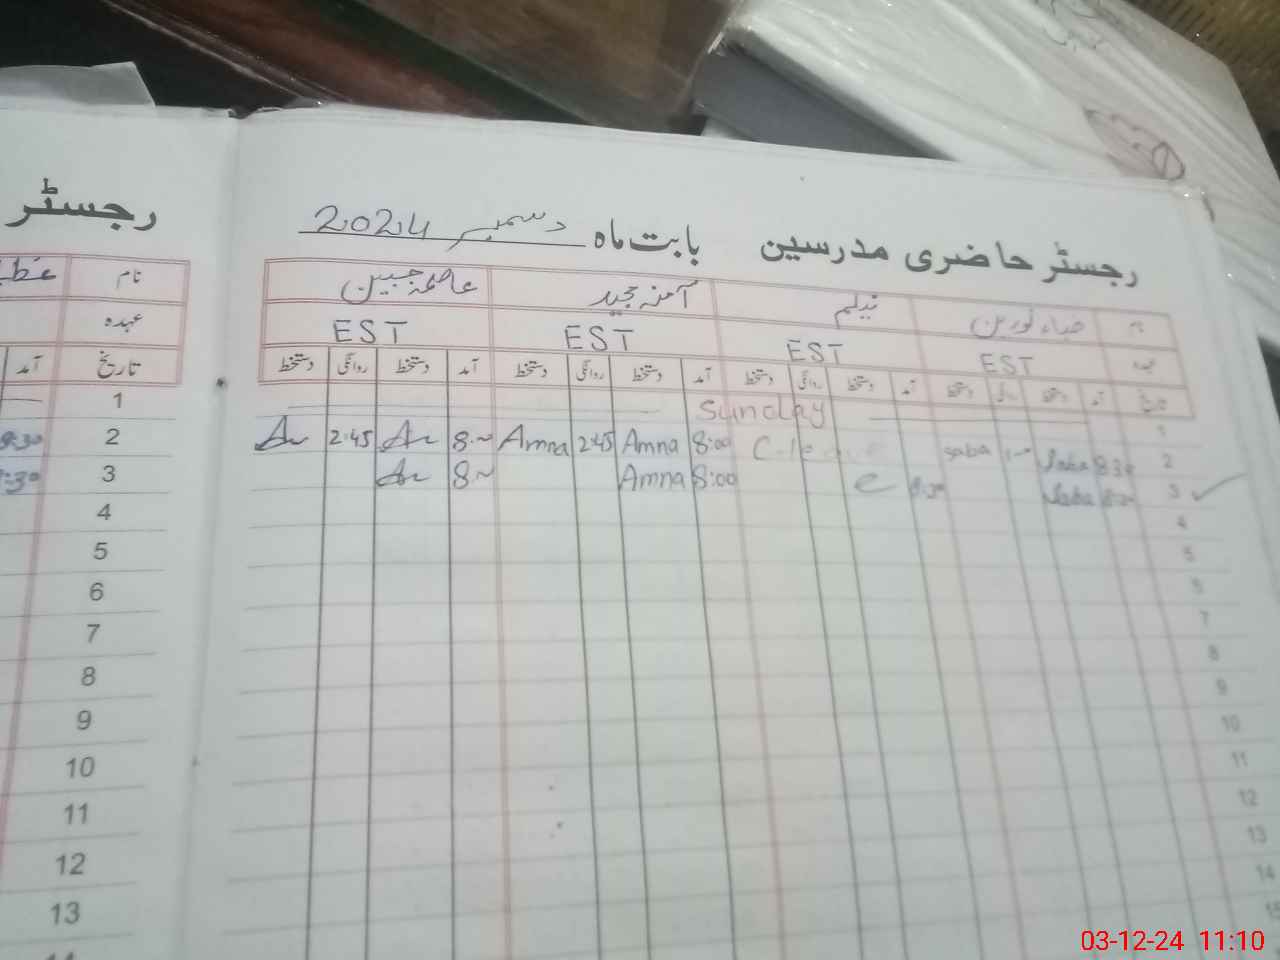 رجسٹر حاضری مدرسین بابت ماہ دسمبر 2024
نام صباء نورین نیلم آمنہ مجید عاصمہ جبین
عہدہ EST EST EST EST
تاریخ آمد دستخط روانگی دستخط آمد دستخط روانگی دستخط آمد دستخط روانگی دستخط آمد دستخط روانگی دستخط
1 Sunday
2 8:30 Saba saba 8:00 Amna 2:45 Amna 8:~ 2:45
3 Saba 8:30 8:00 Amna 8:~
4
5
6
7
8
9
10
11
12
13
14
رجسٹر
نام
عہدہ
تاریخ آمد
1
2 8:30
3 :30
4
5
6
7
8
9
10
11
12
13
03-12-24 11:10